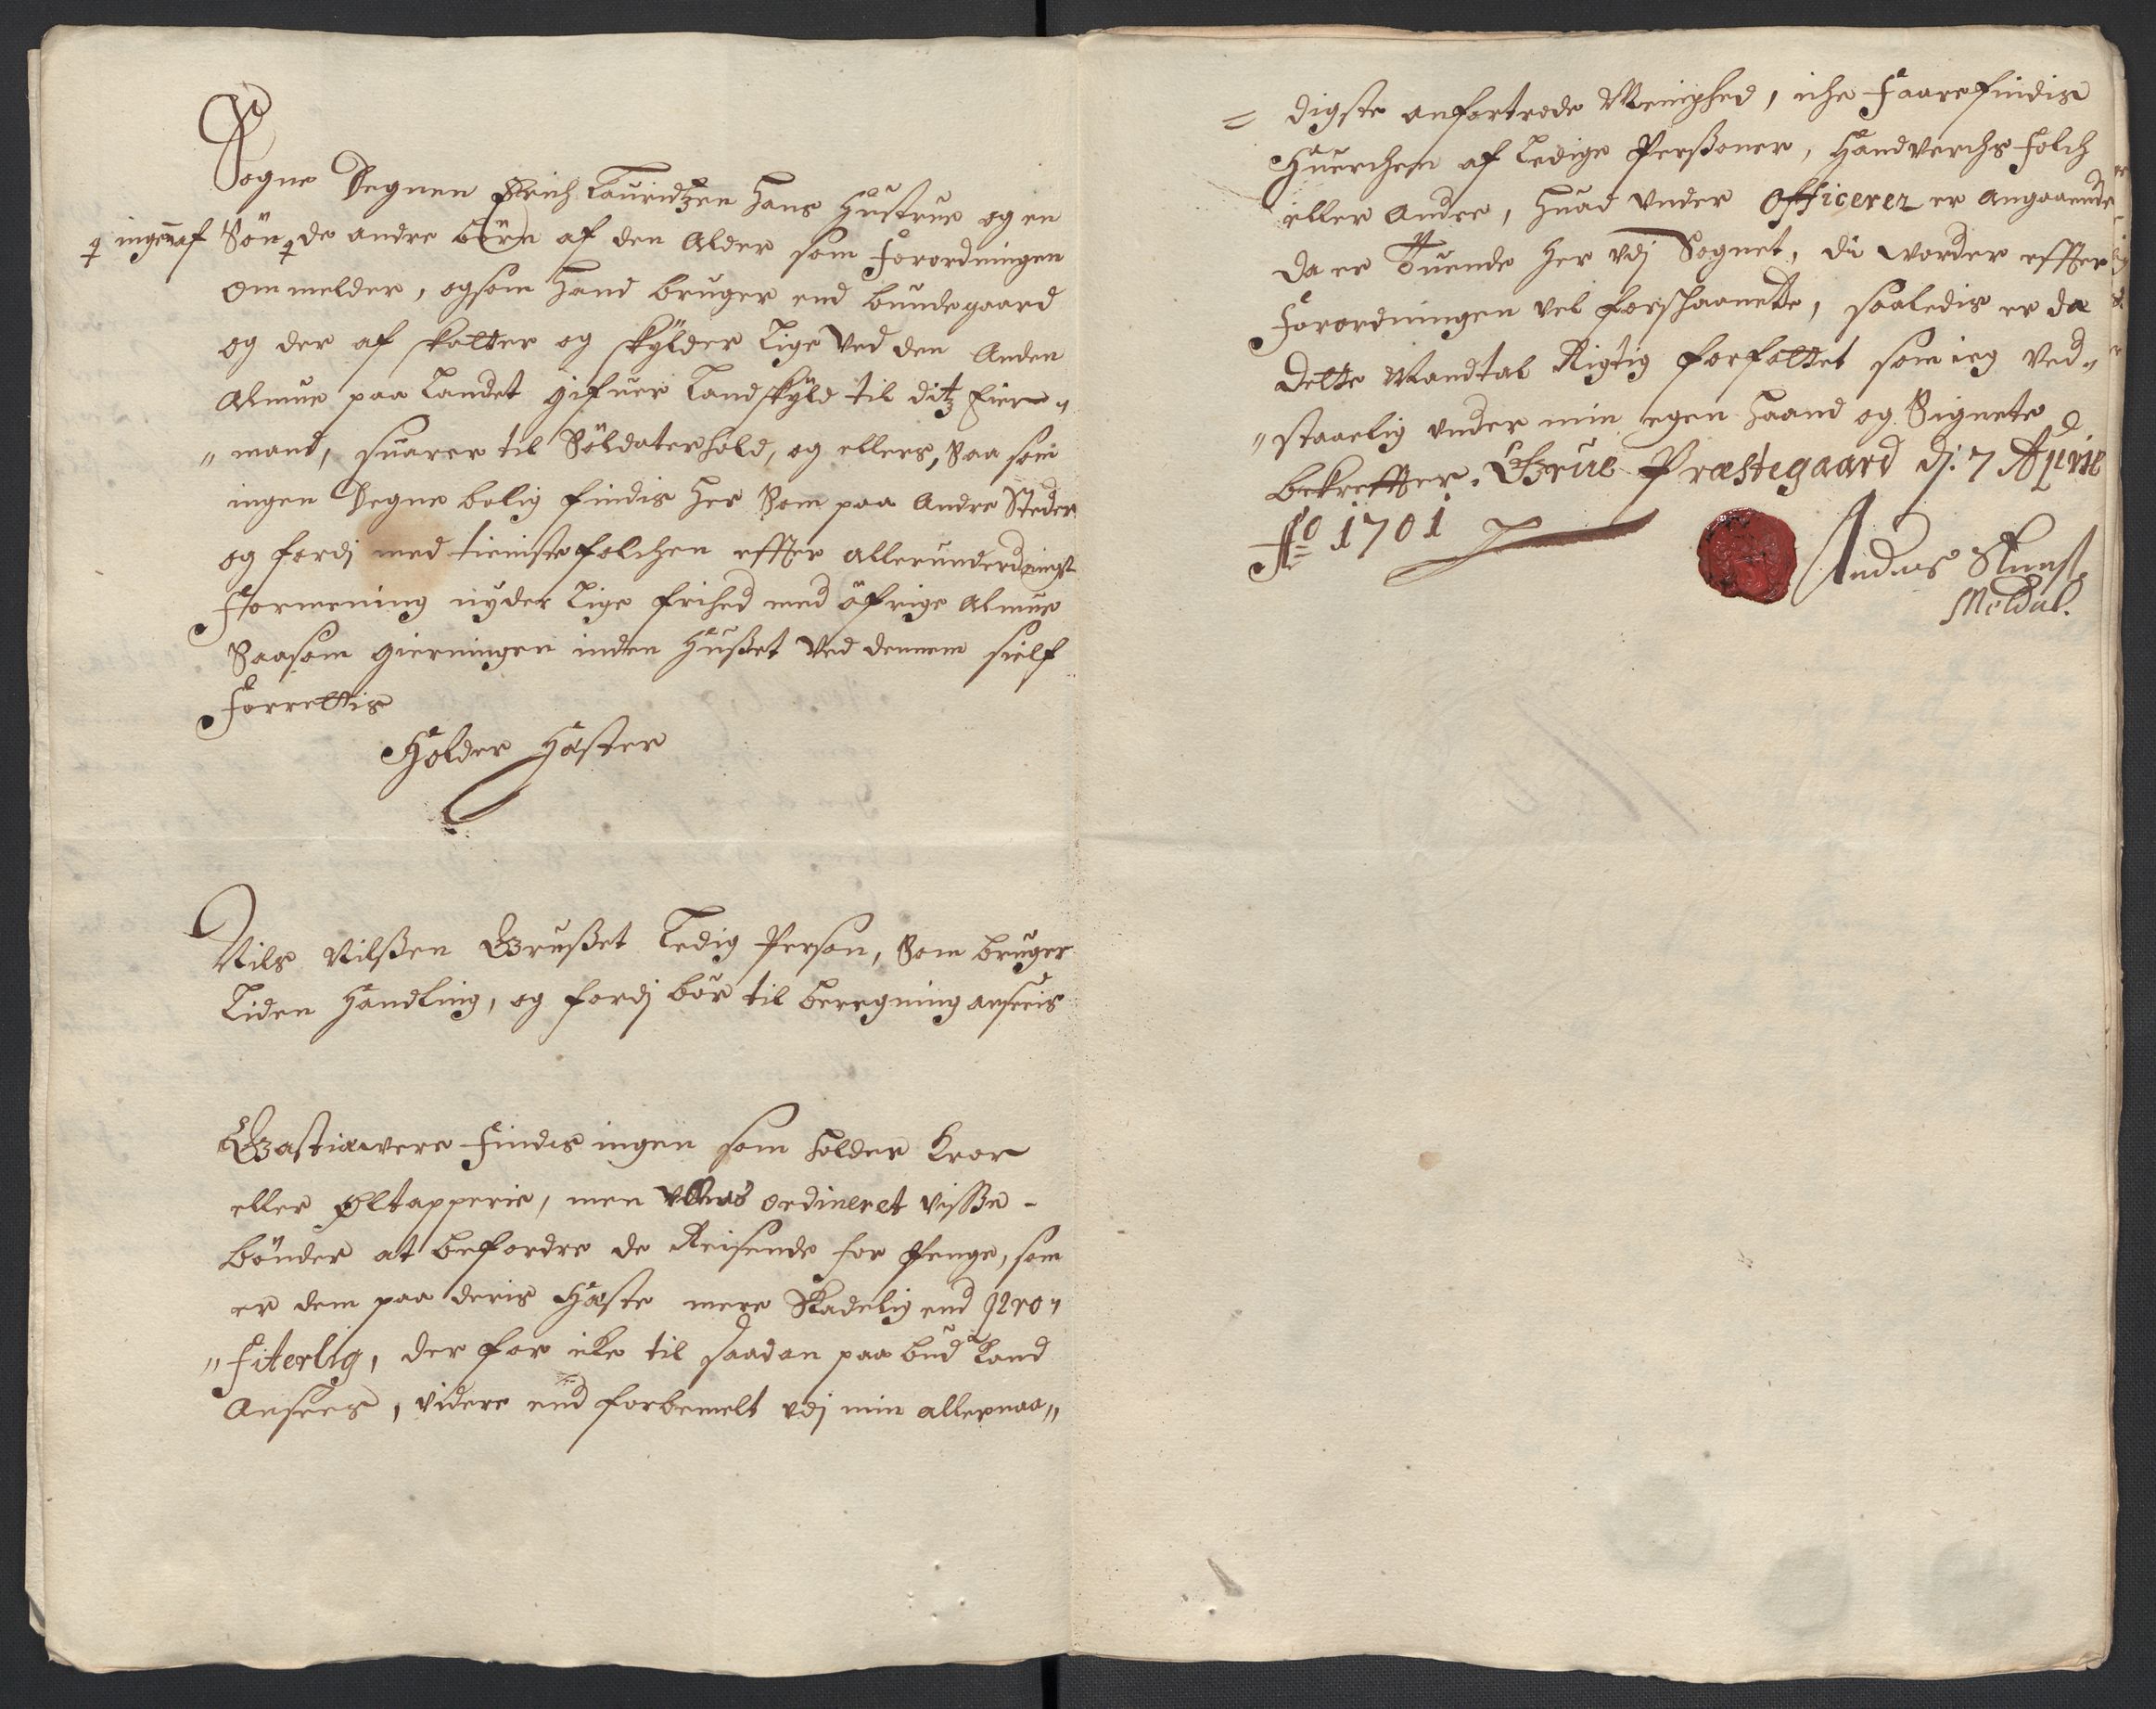 Sogne Degnen Erich Lauridtzen Hans Hustrue og en
ingen af Sön de andre börn af den Alder som Forordningen
om melder, ogsom Hand bruger end bundegaard
og der af skatter og skylder Lige Ved den Anden
Almue paa Landet gifuer Landskyld til ditz Eier„
„mand, suarer til Soldaterhold, og ellers, Saa som
ingen Degne bolig findis her Som paa Andre Steder
og fordj med tienistefolchen effter allerunderdanigst
Formening nyder Lige frihed med öfrige Almue
Saasom gierningen inden Hußet Ved dennem sielf
Forrettis
Holder Hæster
Nils Nilßen Grußet Ledig Person, Som bruger
Liden Handling, og fordj bör til beregning ansees
Gastgiævere Findis ingen som holder Kror
eller Øltapperie, men ordineret visse
bönder at befordre de Reisende for Penge, som
er dem paa deris Hæste mere Skadelig end pro„
„fiterlig, der for ike til saadan paa bud kand
Ansees, videre end forbemelt vdj min allernaa„
= digste anfortrode Menighed, iche Faarefindis
Huerchen af Ledige Perßoner, Handverchs Folch
eller Andre, Huad under Officerer er Angaaende
da er Tuende her vdj Sognet, du worder effter
Forordningen vel forskaanede, saaledis er da
dette Mandtal Rigtig forfattet som ieg Ved„
„staaelig under min egen Haand og Signete
bekreffter. Grue Præstegaard dj: 7 April
Ao 1701
Andreas
Meldal.